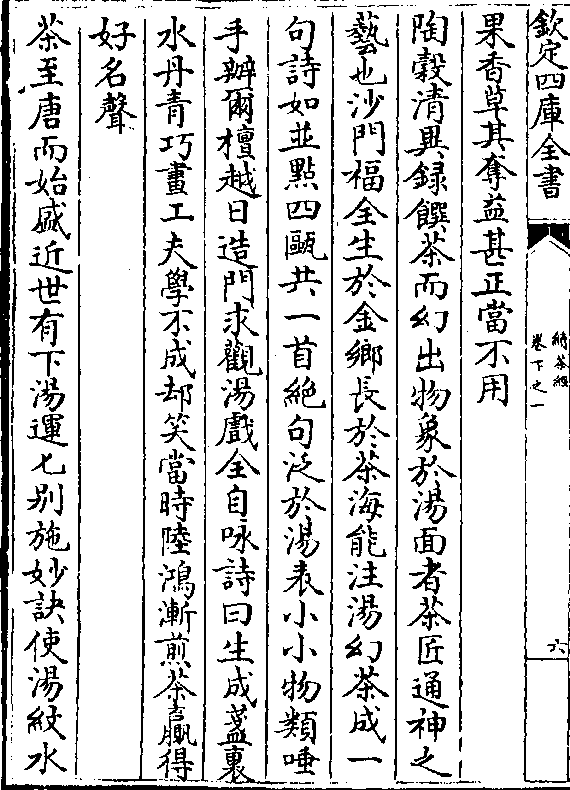 欽定四庫全書
續茶經
卷下之一
六
果香草其奪益甚正當不用
陶穀清異録饌茶而幻出物象於湯面者茶匠通神之
藝也沙門福全生於金鄉長於茶海能注湯幻茶成一
句詩如並點四甌共一首絶句泛於湯表小小物類唾
手辦爾檀越日造門求觀湯戲全自咏詩曰生成盞裏
水丹青巧畫工夫學不成却笑當時陸鴻漸煎茶贏得
好名聲
茶至唐而始盛近世有下湯運匕别施妙訣使湯紋水